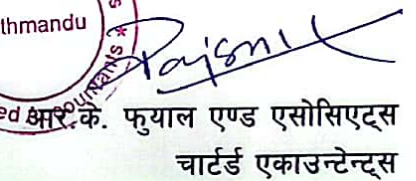 thmandu
आर.के. फुयाल एण्ड एसोसिएट्स
चार्टर्ड एकाउन्टेन्ट्स